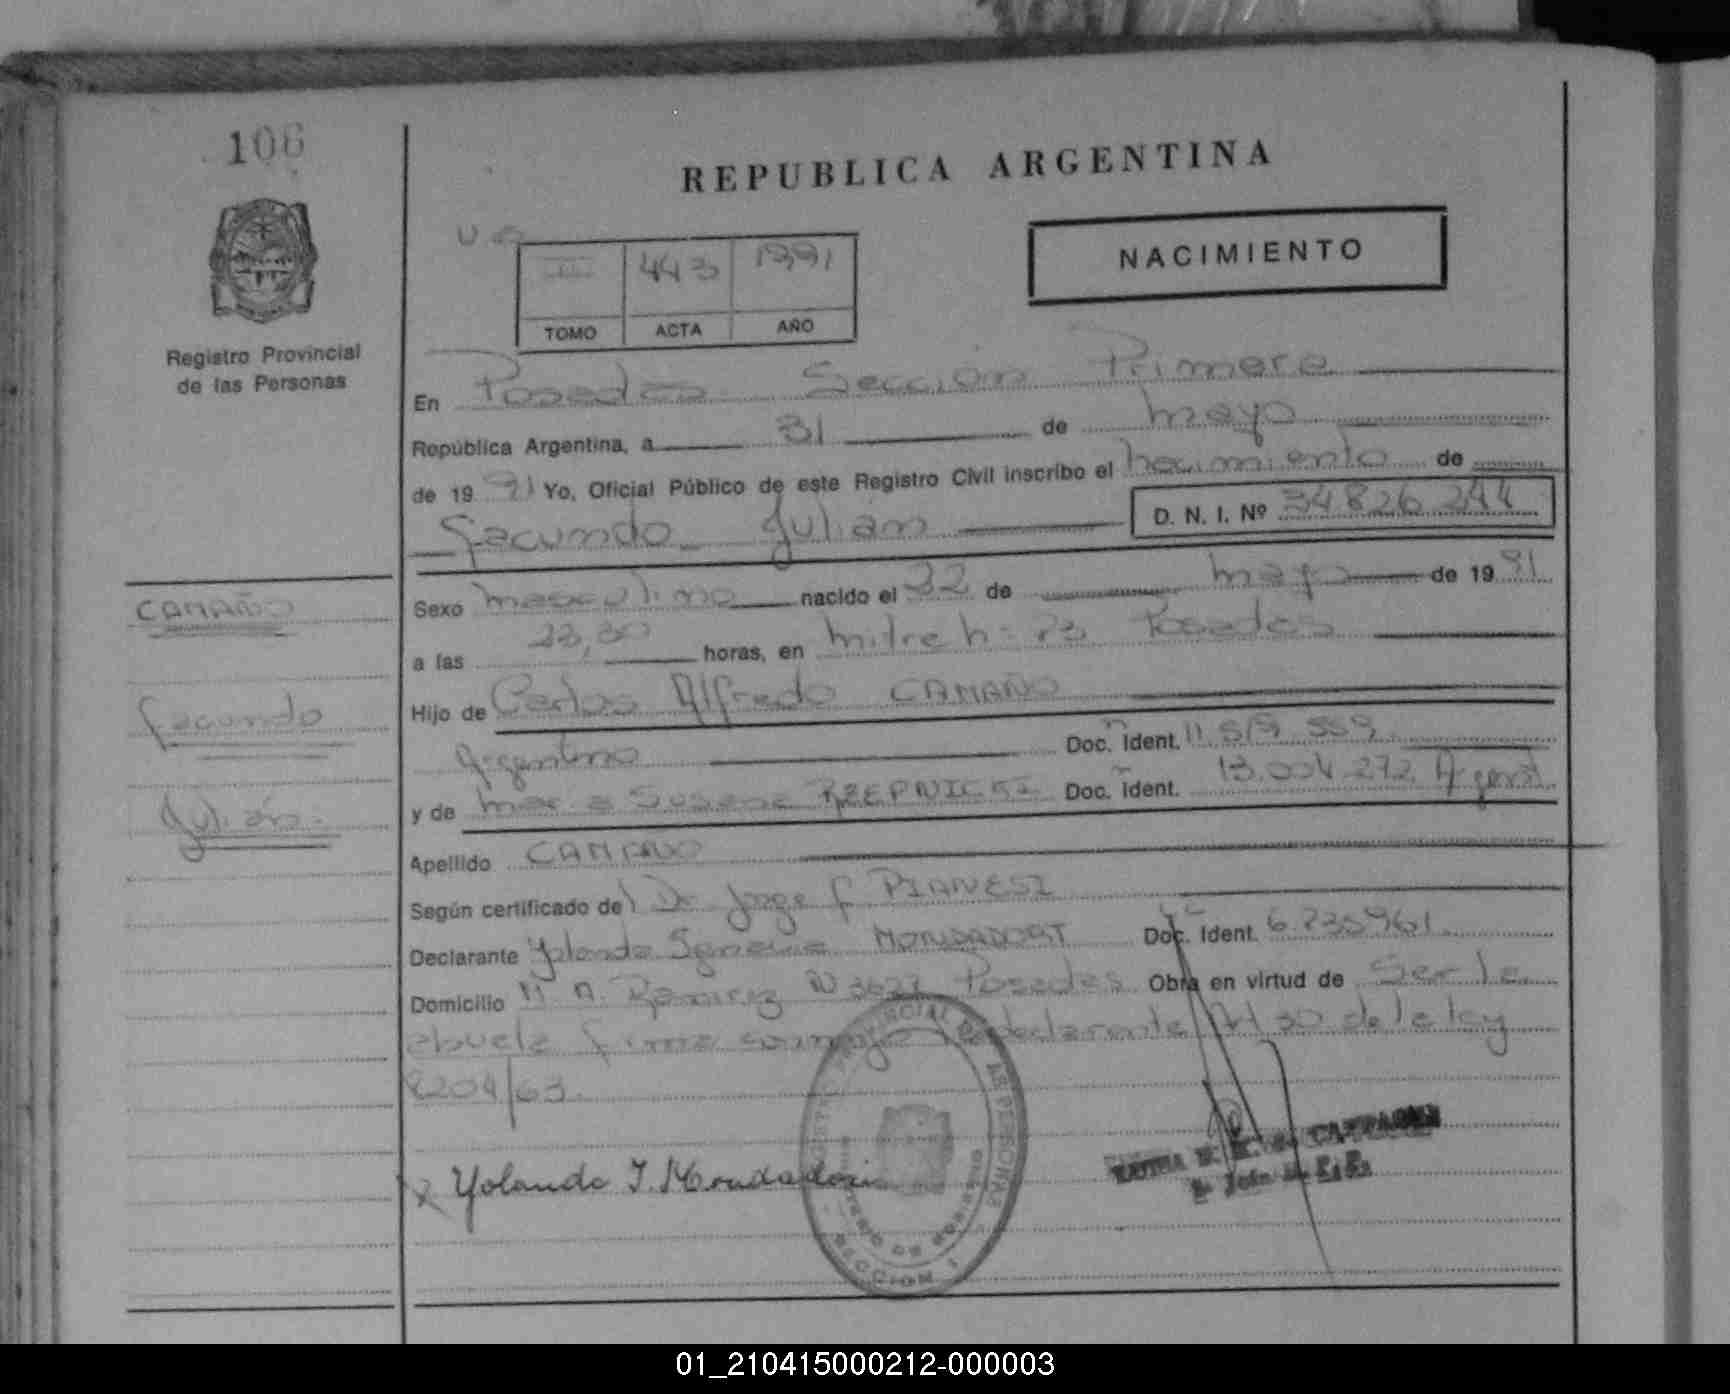 106
REPUBLICA ARGENTINA
Registro Provincial
de las Personas
NACIMIENTO
III 443 1991
TOMO ACTA AÑO
En Posadas Sección Primera
República Argentina, a 31 de mayo
de 19 91 Yo, Oficial Público de este Registro Civil inscribo el nacimiento de
Facundo Julian D. N. I. Nº 34826244
CAMAÑO
Facundo
Julián.
Sexo masculino nacido el 22 de mayo de 19 91
a las 23,30 horas, en Mitre Posadas
Hijo de Carlos Alfredo CAMAÑO
Argentino Doc. Ident.
y de Susana RZEPNICKI Doc. Ident. 13.004.272
Apellido CAMAÑO
Según certificado del Dr Jorge F PIANESI
Declarante Yolanda MONDADORI Doc. Ident.
Domicilio Ramirez Nº 3627 Posadas Obra en virtud de Ser la
abuela firma conmigo la declarante Art 30 de la ley
8204/63.
X Yolanda I. Mondadori
REGISTRO PROVINCIAL DE LAS PERSONAS
SECCION 1
01_210415000212-000003